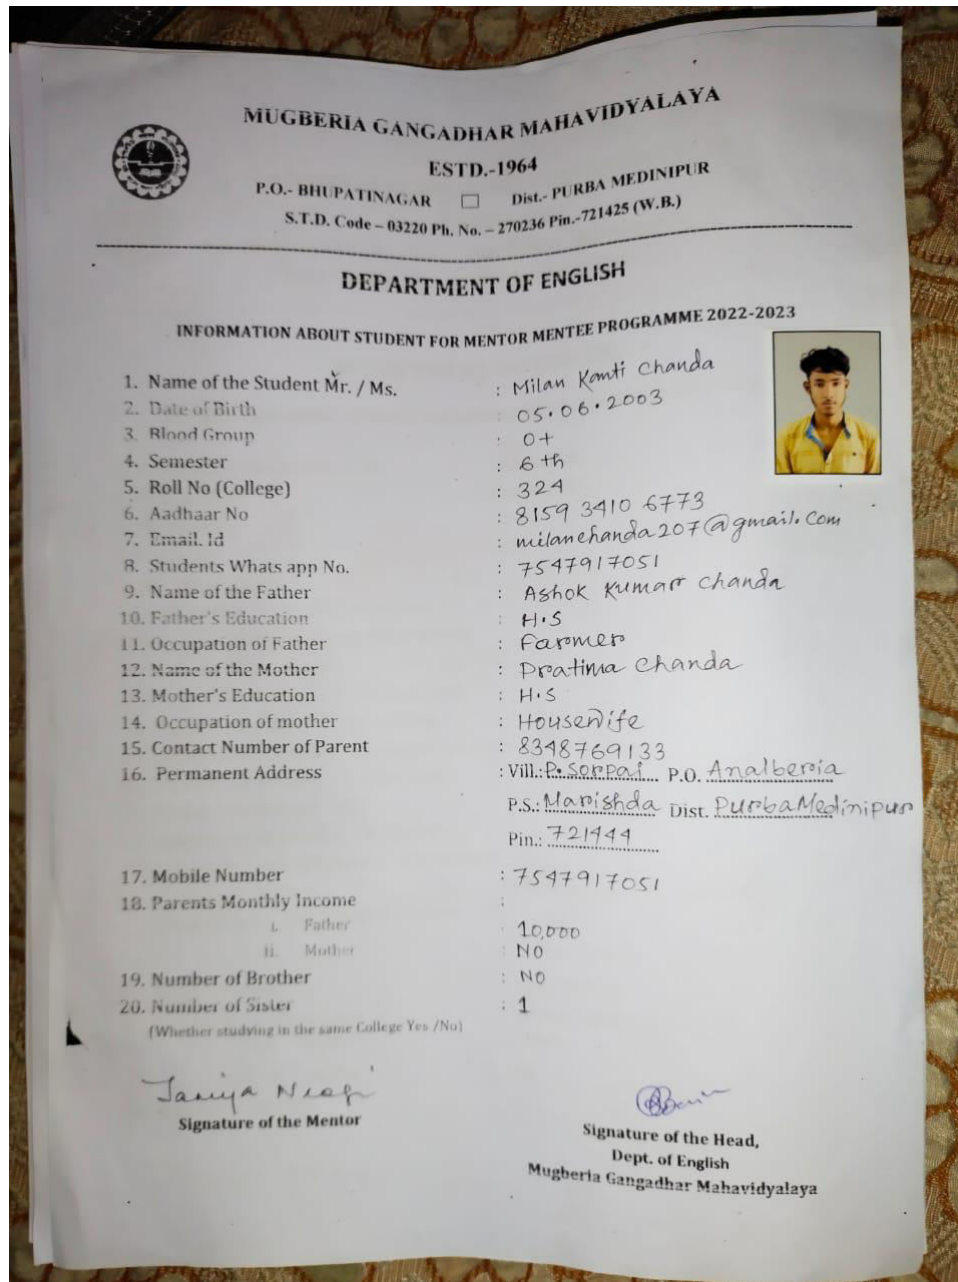 MUGBERIA GANGADHAR MAHAVIDYALAYA
ESTD.-1964
P.O.- BHUPATINAGAR □ Dist.- PURBA MEDINIPUR
S.T.D. Code – 03220 Ph. No. – 270236 Pin.-721425 (W.B.)
DEPARTMENT OF ENGLISH
INFORMATION ABOUT STUDENT FOR MENTOR MENTEE PROGRAMME 2022-2023
1. Name of the Student Mr. / Ms. : Milan Kanti Chanda
2. Date of Birth : 05.06.2003
3. Blood Group : O+
4. Semester : 6th
5. Roll No (College) : 324
6. Aadhaar No : 8159 3410 6773
7. Email. Id : milanchanda207@gmail.com
8. Students Whats app No. : 7547917051
9. Name of the Father : Ashok Kumar Chanda
10. Father's Education : H.S
11. Occupation of Father : Farmer
12. Name of the Mother : Pratima Chanda
13. Mother's Education : H.S
14. Occupation of mother : Housewife
15. Contact Number of Parent : 8348769133
16. Permanent Address : Vill.: P. Sorpai P.O. Analberia
P.S.: Marishda Dist. Purba Medinipur
Pin.: 721444
17. Mobile Number : 7547917051
18. Parents Monthly Income :
i. Father : 10,000
ii. Mother : NO
19. Number of Brother : NO
20. Number of Sister : 1
(Whether studying in the same College Yes /No)
Taniya Neogi
Signature of the Mentor
Signature of the Head,
Dept. of English
Mugberia Gangadhar Mahavidyalaya